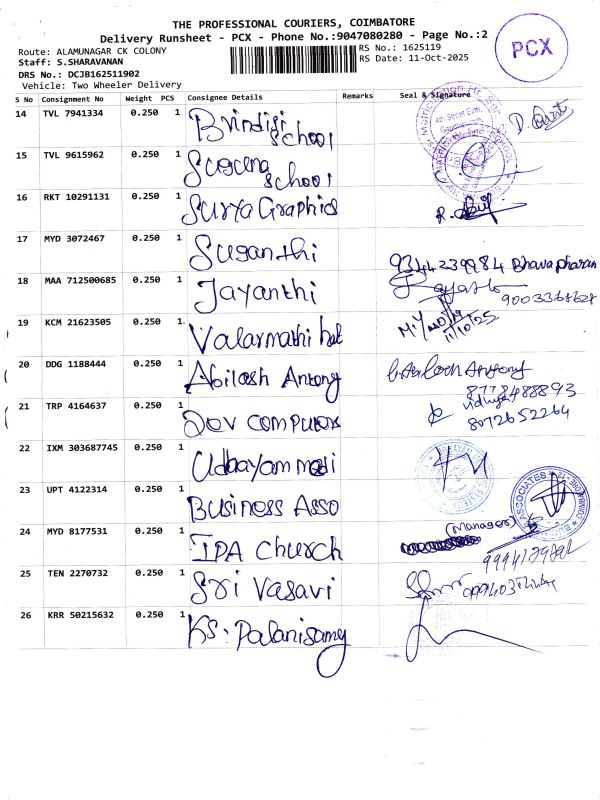 THE PROFESSIONAL COURIERS, COIMBATORE
Delivery Runsheet - PCX - Phone No.:9047080280 - Page No.:2
Route: ALAMUNAGAR CK COLONY
RS No.: 1625119
Staff: S.SHARAVANAN
RS Date: 11-Oct-2025
DRS No.: DCJB162511902
Vehicle: Two Wheeler Delivery
PCX
S No Consignment No Weight PCS Consignee Details Remarks Seal & Signature
14 TVL 7941334 0.250 1 Brindisi School
15 TVL 9615962 0.250 1 Suguna School
16 RKT 10291131 0.250 1 Surya Graphics
17 MYD 3072467 0.250 1 Suganthi 9344239984
18 MAA 712500685 0.250 1 Jayanthi
19 KCM 21623505 0.250 1 Valarmathi 11/10/25
20 DDG 1188444 0.250 1 Abilash Antony
8778488893
21 TRP 4164637 0.250 1 Dev computers 8072652264
22 IXM 303687745 0.250 1
23 UPT 4122314 0.250 1 Business Asso
24 MYD 8177531 0.250 1 IPA church (Manager)
25 TEN 2270732 0.250 1 Sri Vasavi
26 KRR 50215632 0.250 1 KS. Palanisamy